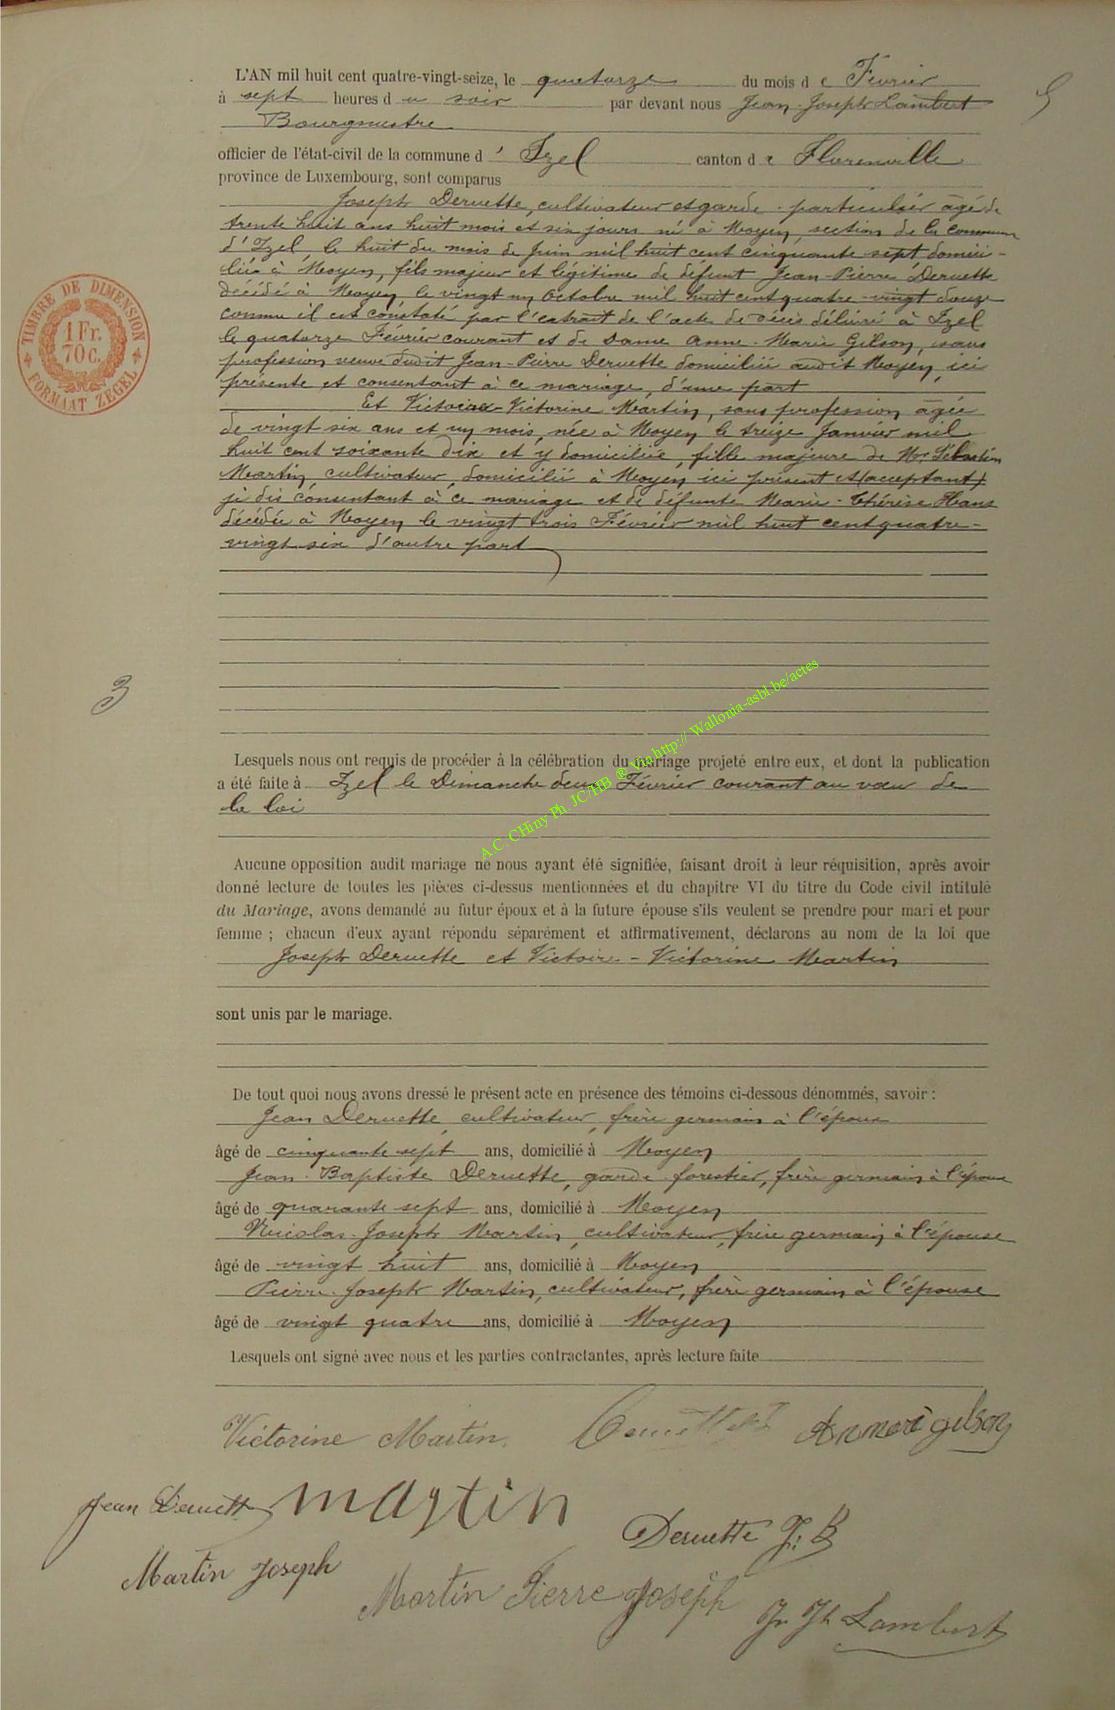 L'AN mil huit cent quatre-vingt-seize, le quatorze du mois de Février
à sept heures du soir par devant nous Jean-Joseph Lambert
Bourgmestre
officier de l'état-civil de la commune d'Izel canton de Florenville
province de Luxembourg, sont comparus
Joseph Deruette, cultivateur et garde-particulier âgé de
trente huit ans huit mois et six jours né à Moyen, section de la commune
d'Izel, le huit du mois de Juin mil huit cent cinquante sept domici-
lié à Moyen, fils majeur et légitime de défunt Jean-Pierre Deruette
décédé à Moyen, le vingt un Octobre mil huit cent quatre-vingt douze
comme il est constaté par l'extrait de l'acte de décès délivré à Izel
le quatorze Février courant et de Dame Anne-Marie Gilson, sans
profession veuve dudit Jean-Pierre Deruette domiciliée audit Moyen, ici
présente et consentant à ce mariage, d'une part
Et Victoire-Victorine Martin, sans profession âgée
de vingt six ans et un mois, née à Moyen le treize Janvier mil
huit cent soixante dix et y domiciliée, fille majeure de Mr Sébastien
Martin, cultivateur, domicilié à Moyen ici présent et (acceptant)
je dis consentant à ce mariage et de défunte Marie-Thérèse Hans
décédée à Moyen le vingt trois Février mil huit cent quatre-
vingt six d'autre part
TIMBRE DE DIMENSION
1 Fr.
70 c.
FORMAAT ZEGEL
3
Lesquels nous ont requis de procéder à la célébration du mariage projeté entre eux, et dont la publication
a été faite à Izel le Dimanche deux Février courant au vœu de
la loi
A.C. CHiny Ph. JC/HB ® Via http:// Wallonia-asbl.be/actes
Aucune opposition audit mariage ne nous ayant été signifiée, faisant droit à leur réquisition, après avoir
donné lecture de toutes les pièces ci-dessus mentionnées et du chapitre VI du titre du Code civil intitulé
du Mariage, avons demandé au futur époux et à la future épouse s'ils veulent se prendre pour mari et pour
femme ; chacun d'eux ayant répondu séparément et affirmativement, déclarons au nom de la loi que
Joseph Deruette et Victoire-Victorine Martin
sont unis par le mariage.
De tout quoi nous avons dressé le présent acte en présence des témoins ci-dessous dénommés, savoir :
Jean Deruette, cultivateur, frère germain à l'époux
âgé de cinquante sept ans, domicilié à Moyen
Jean-Baptiste Deruette, garde forestier, frère germain à l'époux
âgé de quarante sept ans, domicilié à Moyen
Nicolas-Joseph Martin, cultivateur, frère germain à l'épouse
âgé de vingt huit ans, domicilié à Moyen
Pierre-Joseph Martin, cultivateur, frère germain à l'épouse
âgé de vingt quatre ans, domicilié à Moyen
Lesquels ont signé avec nous et les parties contractantes, après lecture faite
Victorine Martin. Anmari gilson
Jean Deruette martin
Deruette J. B
Martin Joseph
Martin Pierre Joseph
Jn Jh Lambert